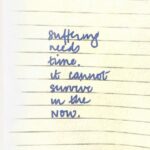 suffering
needs
time.
it cannot
survive
in the
NOW.